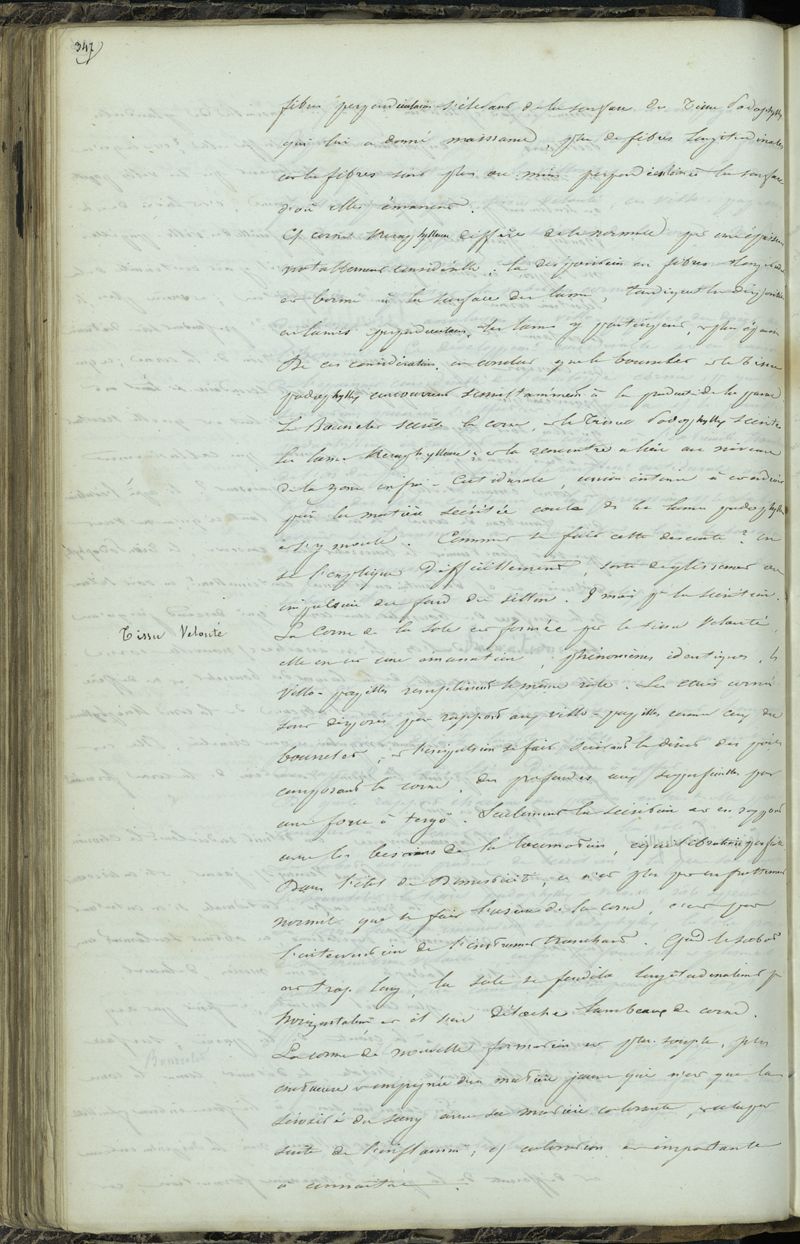 347
fibres perpendiculaires s'élevant de la surface du Tissu Podophylle
qui lui a donné naissance, plus de fibres longitudinales
ces fibres sont plus ou moins perpendiculaires à la surface
d'où elles émanent.
Cs corne Keraphylleuse diffère de la normale par une épaisseur
notablement considérable ; la disposition en fibres
est bornée à la surface des lames, tandis que la disposition
en lames perpendiculaires, les lames y participent, plus
De ces considérations, on conclut que le bourrelet et le Tissu
podophylle concourent à la production de la paroi
Le Bourrelet secrète la corne, et le Tissu Podophylle secrète
les lames Keraphylleuses ; et la rencontre a lieu au niveau
de la zone infra-cutidurale, union intime à condition
que la matière secrétée coule de la lame podophylle
et s'y moule. Comment se fait cette descente ? on
se l'explique difficilement, sorte de glissement ou
impulsion du fond du sillon. mais par la secretion.
Tissu Velouté
La Corne de la sole est formée par le tissu Velouté,
elle en est une émanation, phénomènes identiques, les
villo-papilles remplissent le même rôle. Les étuis cornés
sont disposés par rapport aux villo-papilles comme ceux du
bourrelet, et l'impulsion se fait suivant la direct des parties
composant la corne, des profondes aux superficielles par
une force à tergo. Seulement la secretion est en rapport
avec les besoins de la locomotion, équilibration parfaite
Dans l'état de Domesticité, ce n'est plus par un frottement
normal que se fait l'usure de la corne, c'est par
l'intervention de l'instrument tranchant. Qd le sabot
est trop long, la sole se fendille longitudinalement
horizontalem et il s'en détache lambeaux de corne.
La corne de nouvelle formation est plus souple, plus
onctueuse imprégnée d'une matière jaune qui n'est que la
sérosité du sang avec sa matière colorante,
suite de l'inflamm, cs coloration est importante
à connaître.